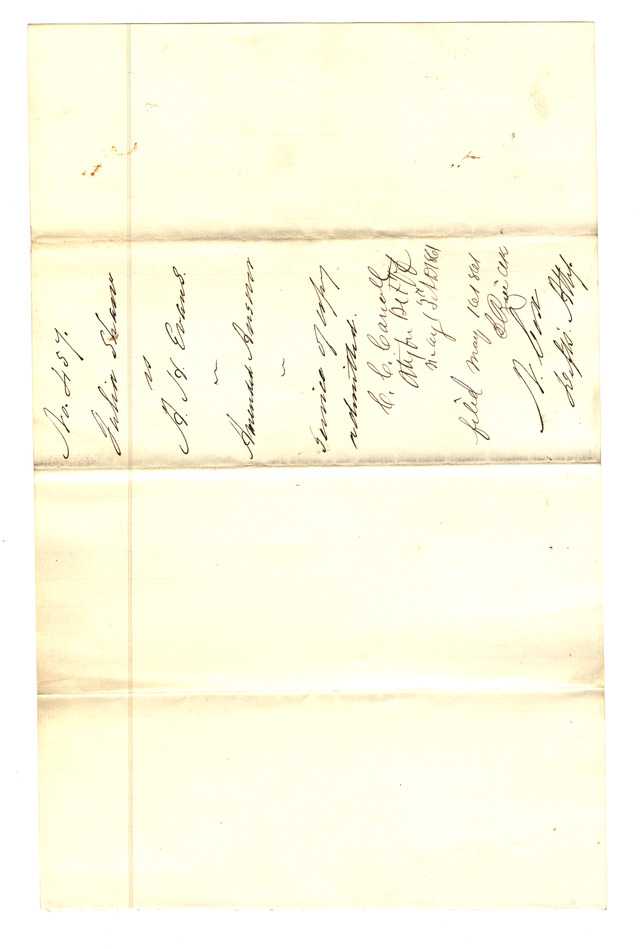 No. 457.
Julia Shaw
vs
A. H. Evans.
~
Amended Answer
~
Service of copy
admitted.
C. C. Carroll
Atty for Pltff
May 1861
filed May 16 1861
W. Cox
Defts. Atty.